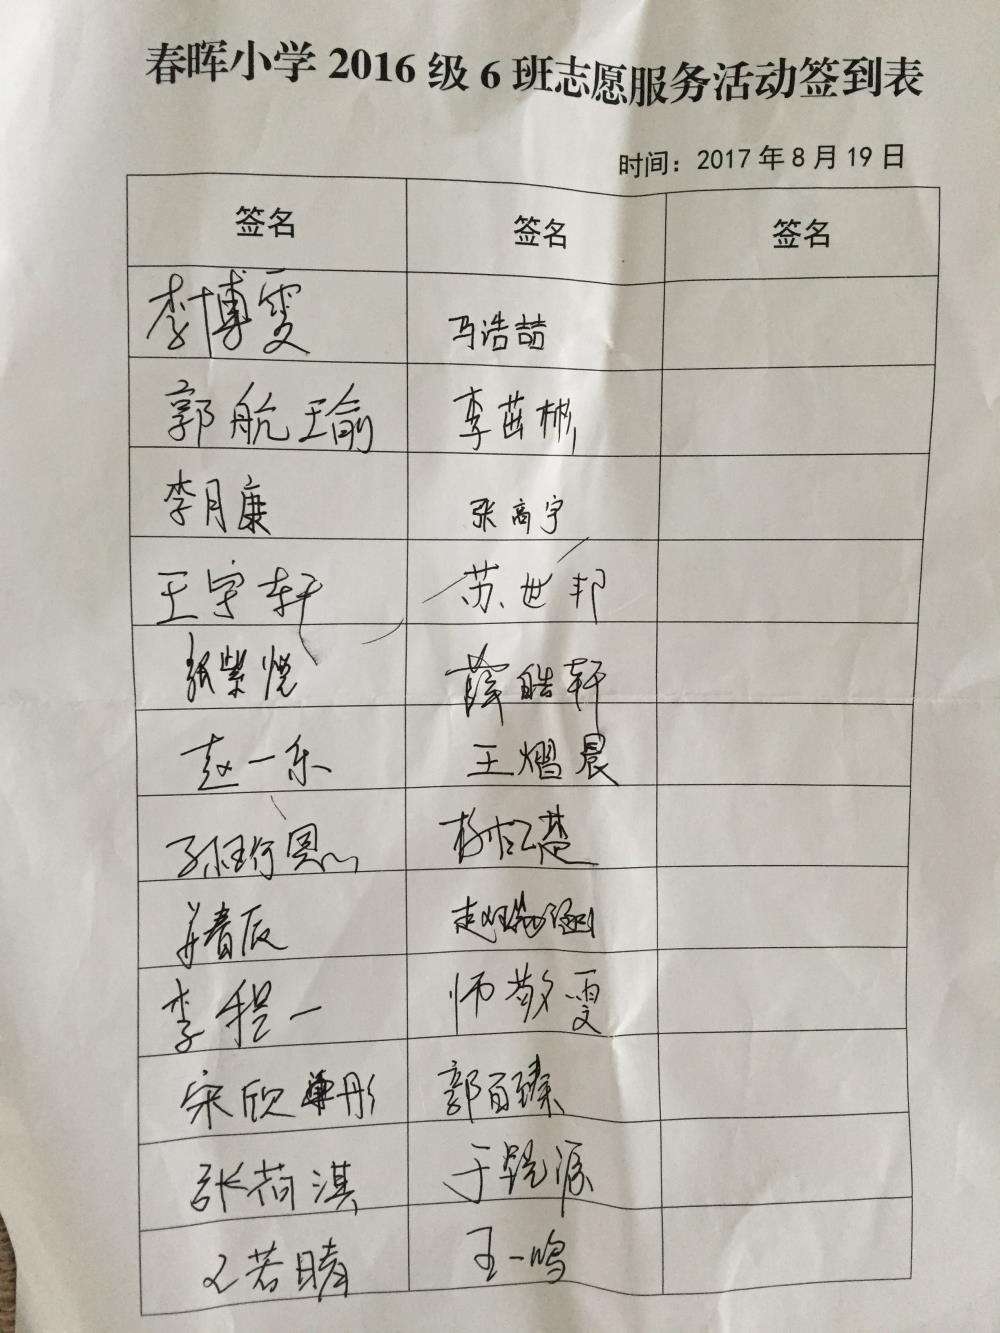 春晖小学 2016 级 6 班志愿服务活动签到表
时间：2017 年 8 月 19 日
签名 签名 签名
李博雯 马浩喆
郭航瑜 李茁彬
李月康 张高宇
王宇轩 苏世邦
张紫悦 薛皓轩
赵一乐 王熠晨
孙珩恩 杨楚
姜春辰 赵
李程一 师敬雯
宋欣彤 郭百臻
张荷淇 于锐源
若晴 王一鸣